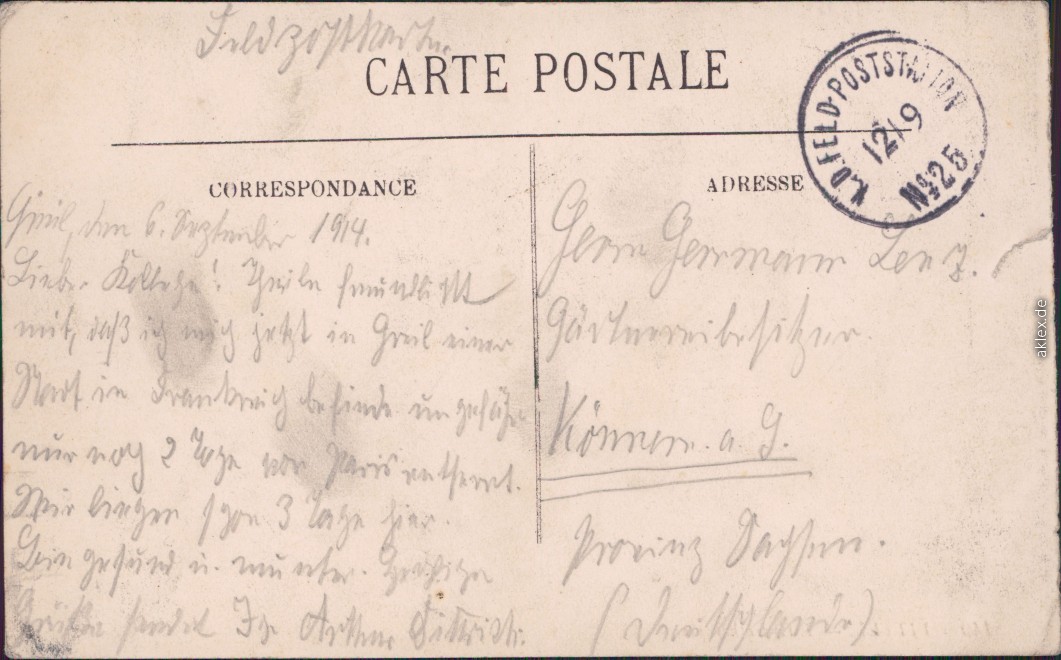 Feldpostkarte
CARTE POSTALE
K.D. FELD-POSTSTATION
12/9
No 25
CORRESPONDANCE
ADRESSE
den 6. September 1914.
Lieber Kollege! Theile freundlichst
mit, daß ich mich jetzt in Creil einer
Stadt in Frankreich befinde ungefähr
nur noch 2 Tage von Paris entfernt.
Wir liegen schon 3 Tage hier.
Bin gesund u. munter. Herzliche
Grüße sendet Ihr Arthur
Herrn Herrmann Lenz.
Gärtnereibesitzer.
Könnern. a. S.
Provinz Sachsen.
(Deutschland).
aklex.de